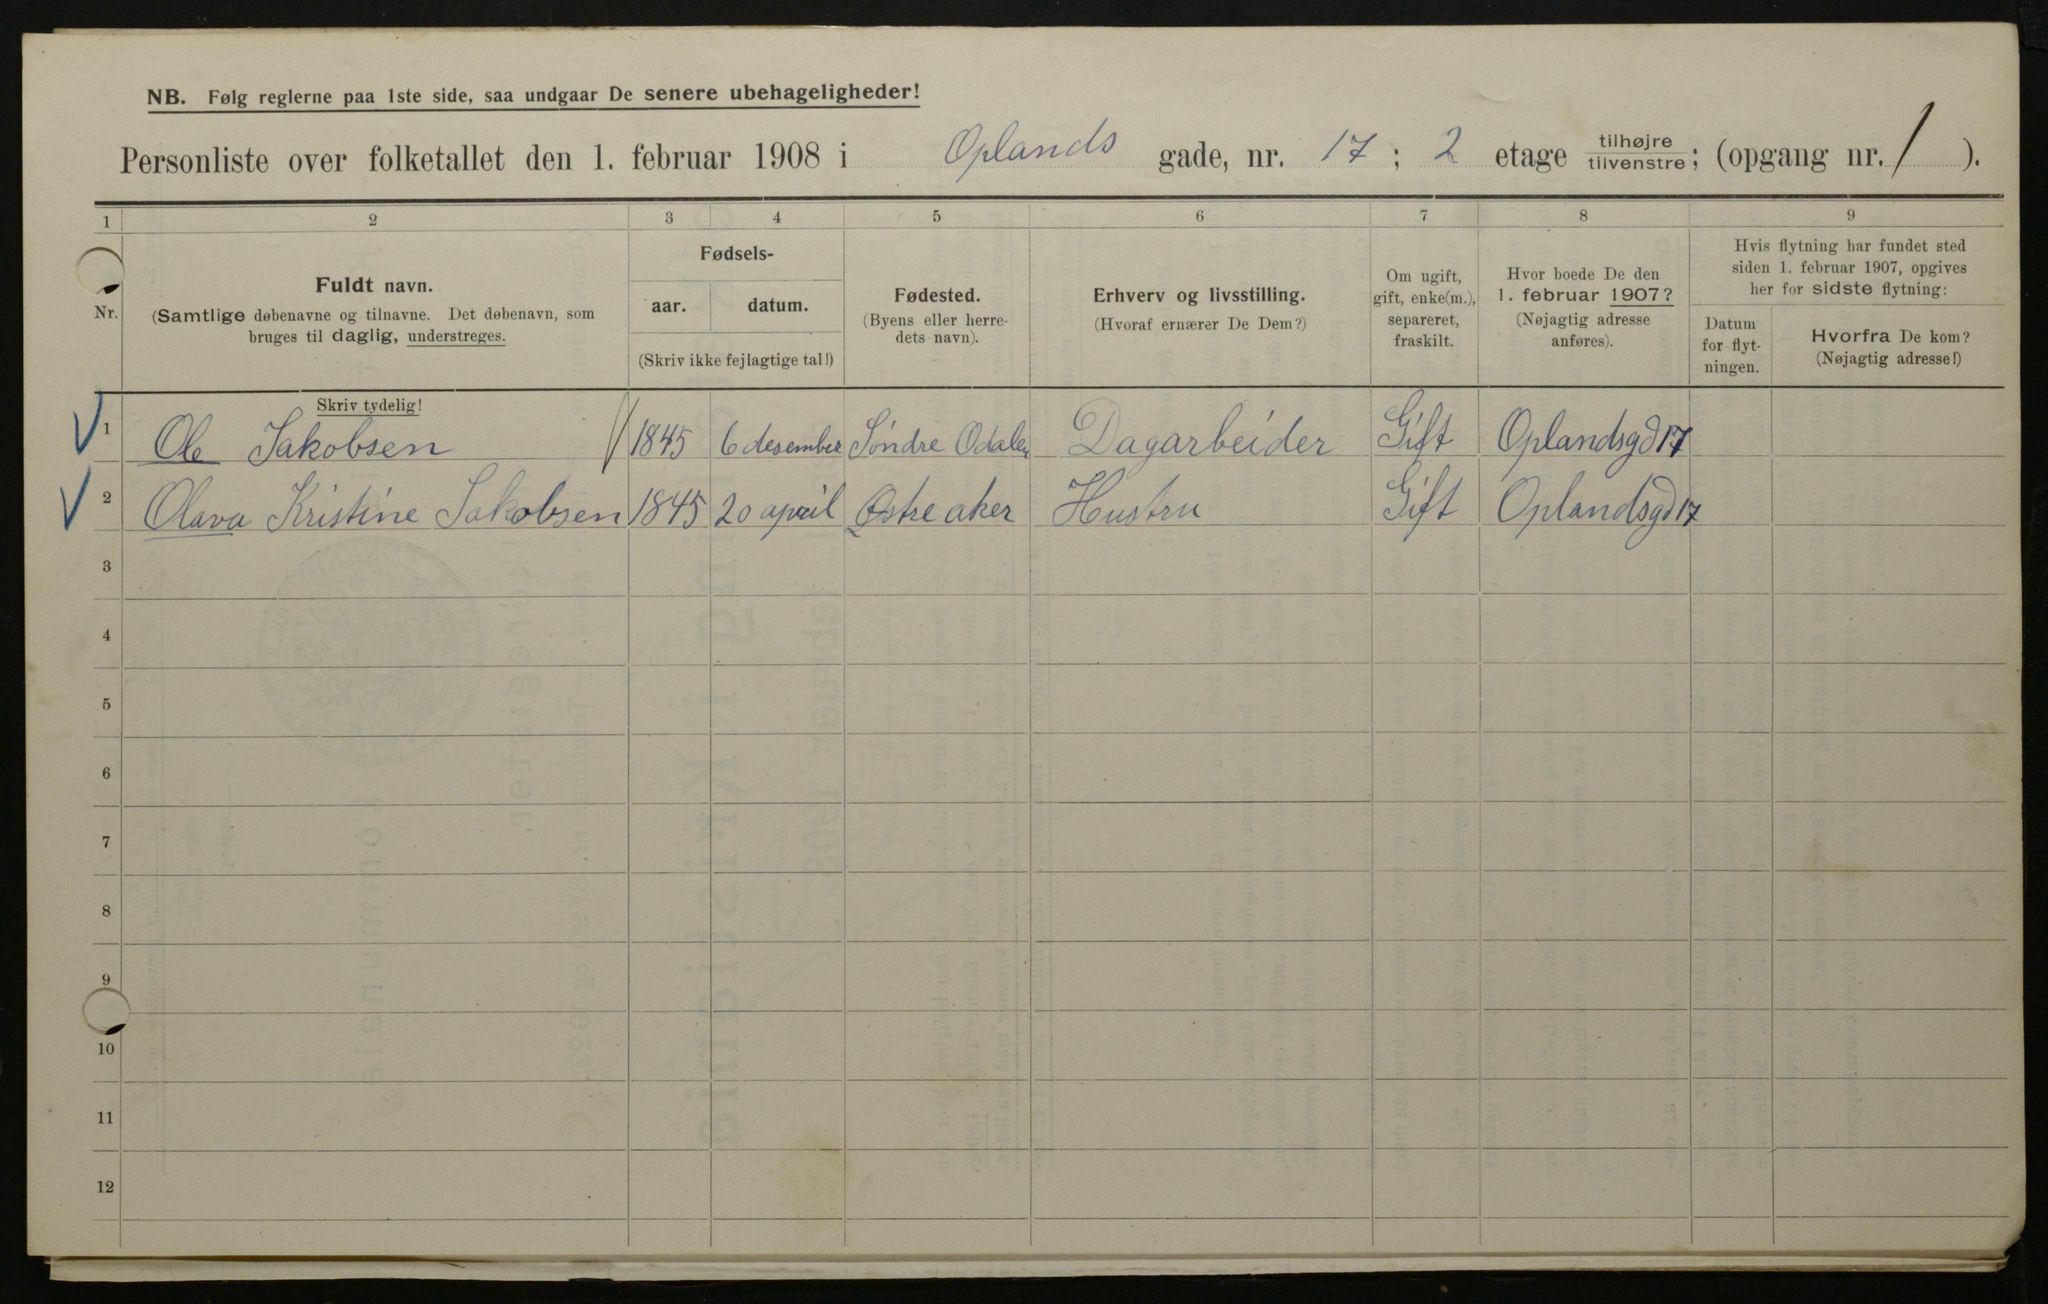 NB. Følg reglerne paa 1ste side, saa undgaar De senere ubehageligheder!
Personliste over folketallet den 1. februar 1908 i Oplands gade, nr. 17; 2 etage tilhøjre/tilvenstre; (opgang nr. 1).
1 2 3 4 5 6 7 8 9
Nr.
Fuldt navn.
(Samtlige døbenavne og tilnavne. Det døbenavn, som
bruges til daglig, understreges.
Skriv tydelig!
Fødsels-
aar. datum.
(Skriv ikke fejlagtige tal!)
Fødested.
(Byens eller herre-
dets navn).
Erhverv og livsstilling.
(Hvoraf ernærer De Dem?)
Om ugift,
gift, enke(m.),
separeret,
fraskilt.
Hvor boede De den
1. februar 1907?
(Nøjagtig adresse
anføres).
Hvis flytning har fundet sted
siden 1. februar 1907, opgives
her for sidste flytning:
Datum
for flyt-
ningen.
Hvorfra De kom?
(Nøjagtig adresse!)
1 Ole Jakobsen 1845 6 desember Søndre Odalen Dagarbeider Gift Oplandsgd 17
2 Olava Kristine Jakobsen 1845 20 april Østre aker Hustru Gift Oplandsgd 17
3
4
5
6
7
8
9
10
11
12